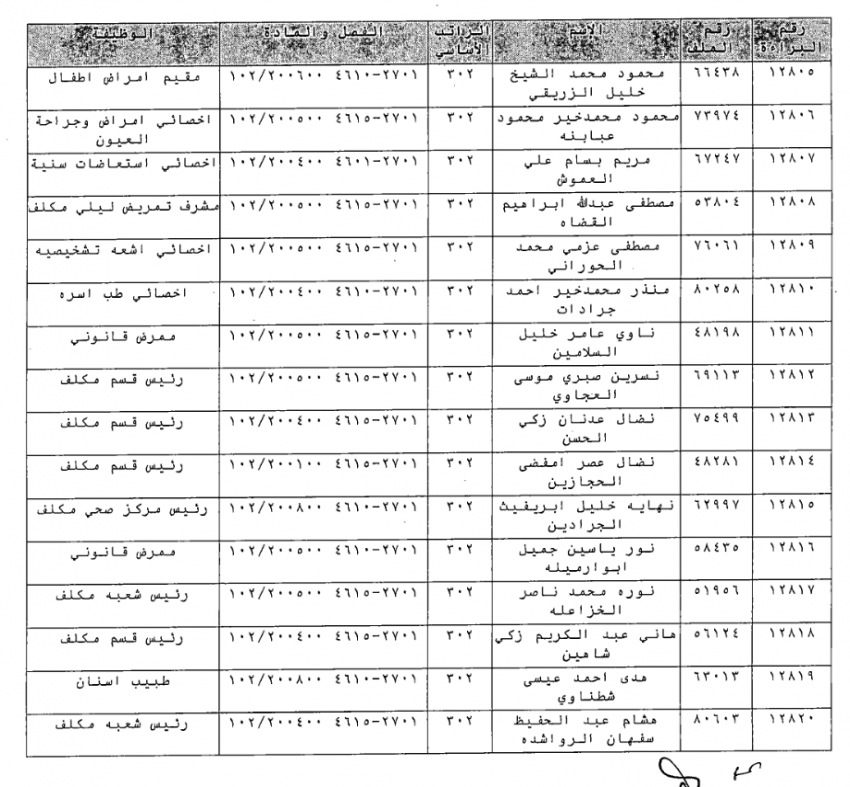 رقم البراءة | رقم الملف | الإسم | الراتب الأساسي | الفصل والمادة | الوظيفة
١٢٨٠٥ | ٦٦٤٣٨ | محمود محمد الشيخ خليل الزريقي | ٣٠٢ | ٢٧٠١-٤٦١٠ ١٠٢/٢٠٠٦٠٠ | مقيم امراض اطفال
١٢٨٠٦ | ٧٣٩٧٤ | محمود محمدخير محمود عبابنه | ٣٠٢ | ٢٧٠١-٤٦١٥ ١٠٢/٢٠٠٥٠٠ | اخصائي امراض وجراحة العيون
١٢٨٠٧ | ٦٧٢٤٧ | مريم بسام علي العموش | ٣٠٢ | ٢٧٠١-٤٦٠١ ١٠٢/٢٠٠٤٠٠ | اخصائي استعاضات سنية
١٢٨٠٨ | ٥٣٨٠٤ | مصطفى عبدالله ابراهيم القضاه | ٣٠٢ | ٢٧٠١-٤٦١٥ ١٠٢/٢٠٠٥٠٠ | مشرف تمريض ليلي مكلف
١٢٨٠٩ | ٧٦٠٦١ | مصطفى عزمي محمد الحوراني | ٣٠٢ | ٢٧٠١-٤٦١٠ ١٠٢/٢٠٠٥٠٠ | اخصائي اشعه تشخيصيه
١٢٨١٠ | ٨٠٢٥٨ | منذر محمدخير احمد جرادات | ٣٠٢ | ٢٧٠١-٤٦١٠ ١٠٢/٢٠٠٤٠٠ | اخصائي طب اسره
١٢٨١١ | ٤٨١٩٨ | ناوي عامر خليل السلامين | ٣٠٢ | ٢٧٠١-٤٦١٥ ١٠٢/٢٠٠٥٠٠ | ممرض قانوني
١٢٨١٢ | ٦٩١١٣ | نسرين صبري موسى العجاوي | ٣٠٢ | ٢٧٠١-٤٦١٥ ١٠٢/٢٠٠٥٠٠ | رئيس قسم مكلف
١٢٨١٣ | ٧٥٤٩٩ | نضال عدنان زكي الحسن | ٣٠٢ | ٢٧٠١-٤٦١٥ ١٠٢/٢٠٠٤٠٠ | رئيس قسم مكلف
١٢٨١٤ | ٤٨٢٨١ | نضال عصر امفضى الحجازين | ٣٠٢ | ٢٧٠١-٤٦١٥ ١٠٢/٢٠٠١٠٠ | رئيس قسم مكلف
١٢٨١٥ | ٦٢٩٩٧ | نهايه خليل ابريغيث الجرادين | ٣٠٢ | ٢٧٠١-٤٦١٠ ١٠٢/٢٠٠٨٠٠ | رئيس مركز صحي مكلف
١٢٨١٦ | ٥٨٤٣٥ | نور ياسين جميل ابوارميله | ٣٠٢ | ٢٧٠١-٤٦١٥ ١٠٢/٢٠٠٥٠٠ | ممرض قانوني
١٢٨١٧ | ٥١٩٠٦ | نوره محمد ناصر الخزاعله | ٣٠٢ | ٢٧٠١-٤٦١٥ ١٠٢/٢٠٠٥٠٠ | رئيس شعبه مكلف
١٢٨١٨ | ٥٦١٢٤ | هاني عبد الكريم زكي شاهين | ٣٠٢ | ٢٧٠١-٤٦١٥ ١٠٢/٢٠٠٤٠٠ | رئيس قسم مكلف
١٢٨١٩ | ٦٣٠١٣ | هدى احمد عيسى شطناوي | ٣٠٢ | ٢٧٠١-٤٦١٠ ١٠٢/٢٠٠٨٠٠ | طبيب اسنان
١٢٨٢٠ | ٨٠٦٠٣ | هشام عبد الحفيظ سفهان الرواشده | ٣٠٢ | ٢٧٠١-٤٦١٥ ١٠٢/٢٠٠٤٠٠ | رئيس شعبه مكلف